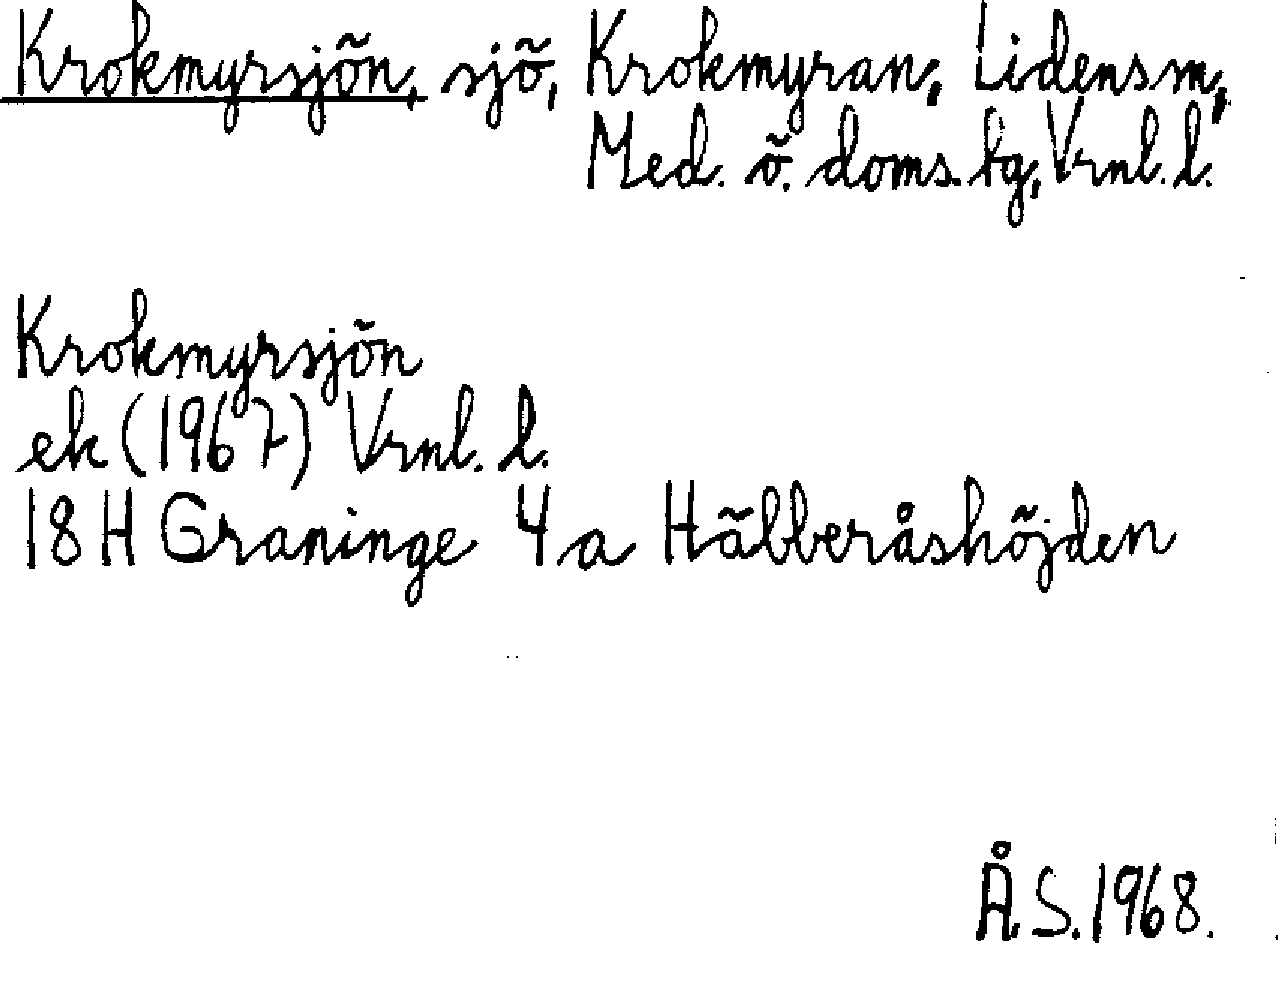 Krokmyrsjön, sjö, Krokmyran, Lidens sn,
Med. ö. doms. tg, Vrnl. l.
Krokmyrsjön
ek (1967) Vrnl. l.
18H Graninge 4a Hälberåshöjden
Å.S. 1968.